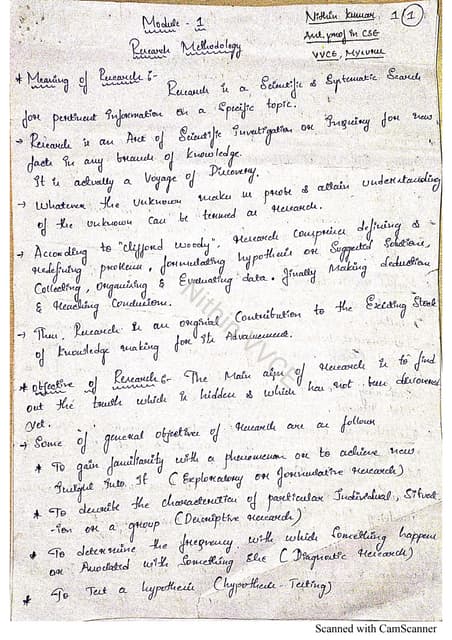 Module - 1
Nithin Kumar 1 1
Research Methodology
Asst. prof in CSE
VVCE, Mysuru
* Meaning of Research :-
Research is a Scientific & Systematic Search
for pertinent Information on a Specific topic.
→ Research is an Art of Scientific Investigation or Inquiry for new
facts in any branch of knowledge.
It is actually a Voyage of Discovery.
→ Whatever the unknown makes us probe & attain understanding
of the unknown can be termed as research.
→ According to "Clifford Woody", research comprises defining &
redefining problems, formulating hypothesis or Suggested Solutions,
Collecting, organising & Evaluating data. finally Making deduction
& Reaching Conclusions.
→ Thus, Research is an original Contribution to the Existing Stock
of Knowledge making for its Advancement.
* objective of Research :- The Main aim of research is to find
out the truth which is hidden & which has not been discovered
yet.
→ Some of general objective of research are as follows
* To gain familiarity with a phenomenon or to achieve new
Insight Into It (Exploratory or formulative research)
* To describe the characteristics of particular Individual, Situat
-ion or a group (Descriptive research)
* To determine the frequency with which Something happens
or Associated with Something Else (Diagnostic Research)
* To Test a hypothesis (hypothesis-Testing)
Nithin VVCE
Scanned with CamScanner